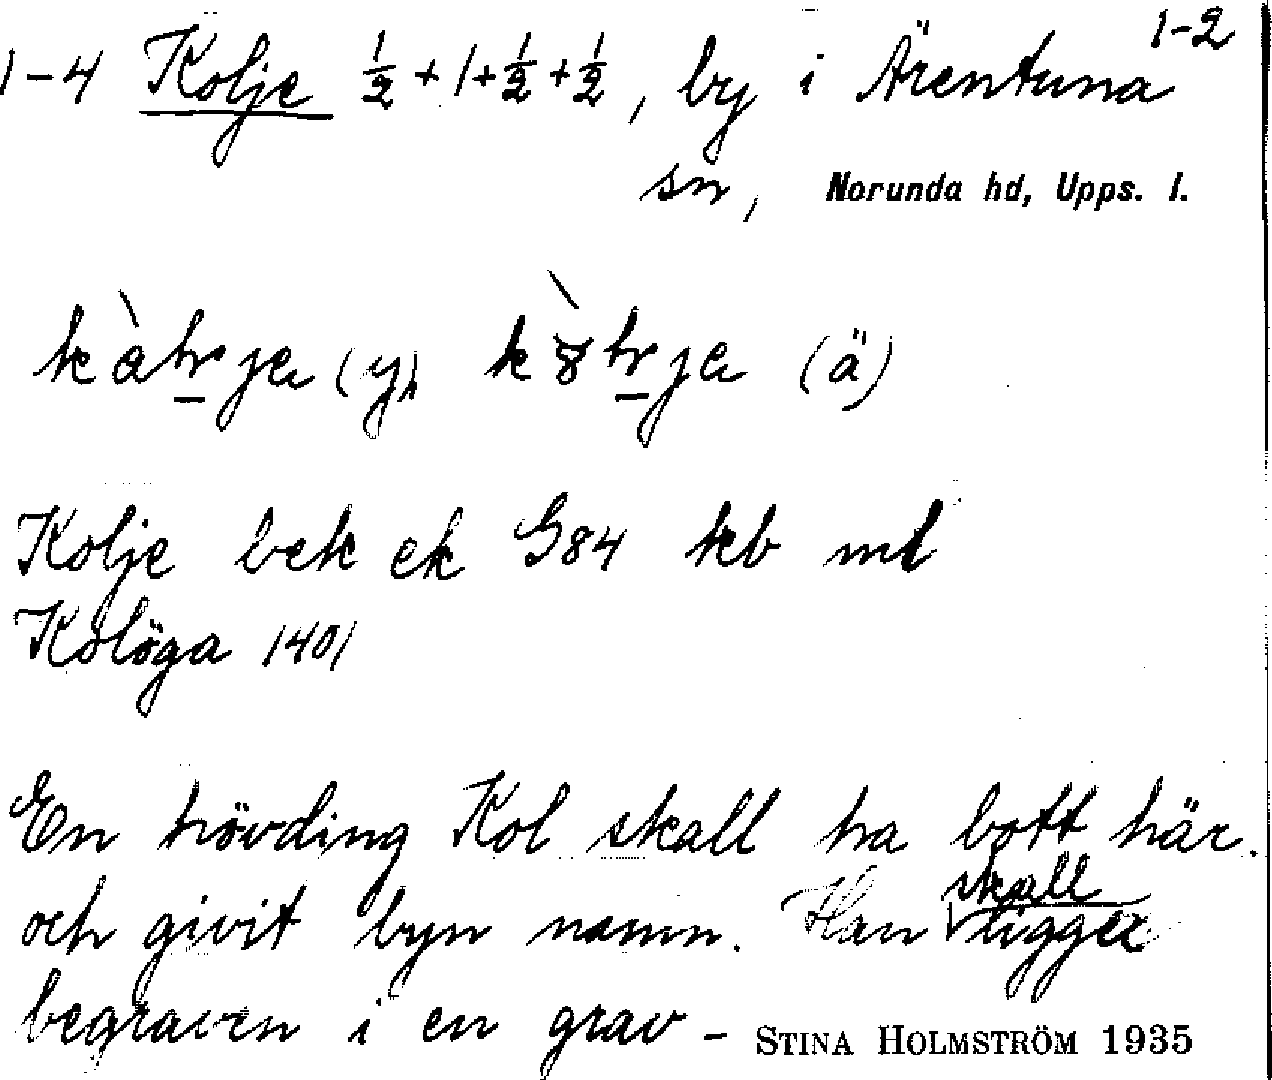 1-2
1-4 Kolje ½ + 1 + ½ + ½, by i Ärentuna
sn, Norunda hd, Upps. l.
(y) (ä)
Kolje bek ek G84 kb ml
Kolöga 1401
En hövding Kol skall ha bott här
och givit byn namn. Han skall ligga
begraven i en grav - STINA HOLMSTRÖM 1935